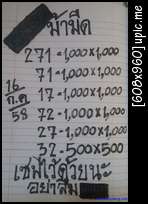 ม้ามืด
271=1,000x1,000
71=1,000x1,000
16 ก.ค 58
17=1,000x1,000
72=1,000x1,000
27=1,000x1,000
32-500x500
เซฟไว้ด้วยนะ
อย่าลืม
[608x960] upic.me